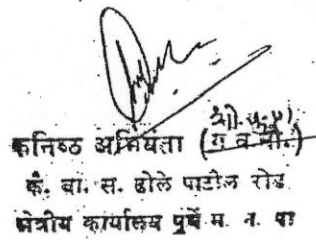 कनिष्ठ अभियंता (ग व नी.)
कै. बा. स. ढोले पाटील रोड
क्षेत्रीय कार्यालय पुणें म. न. पा